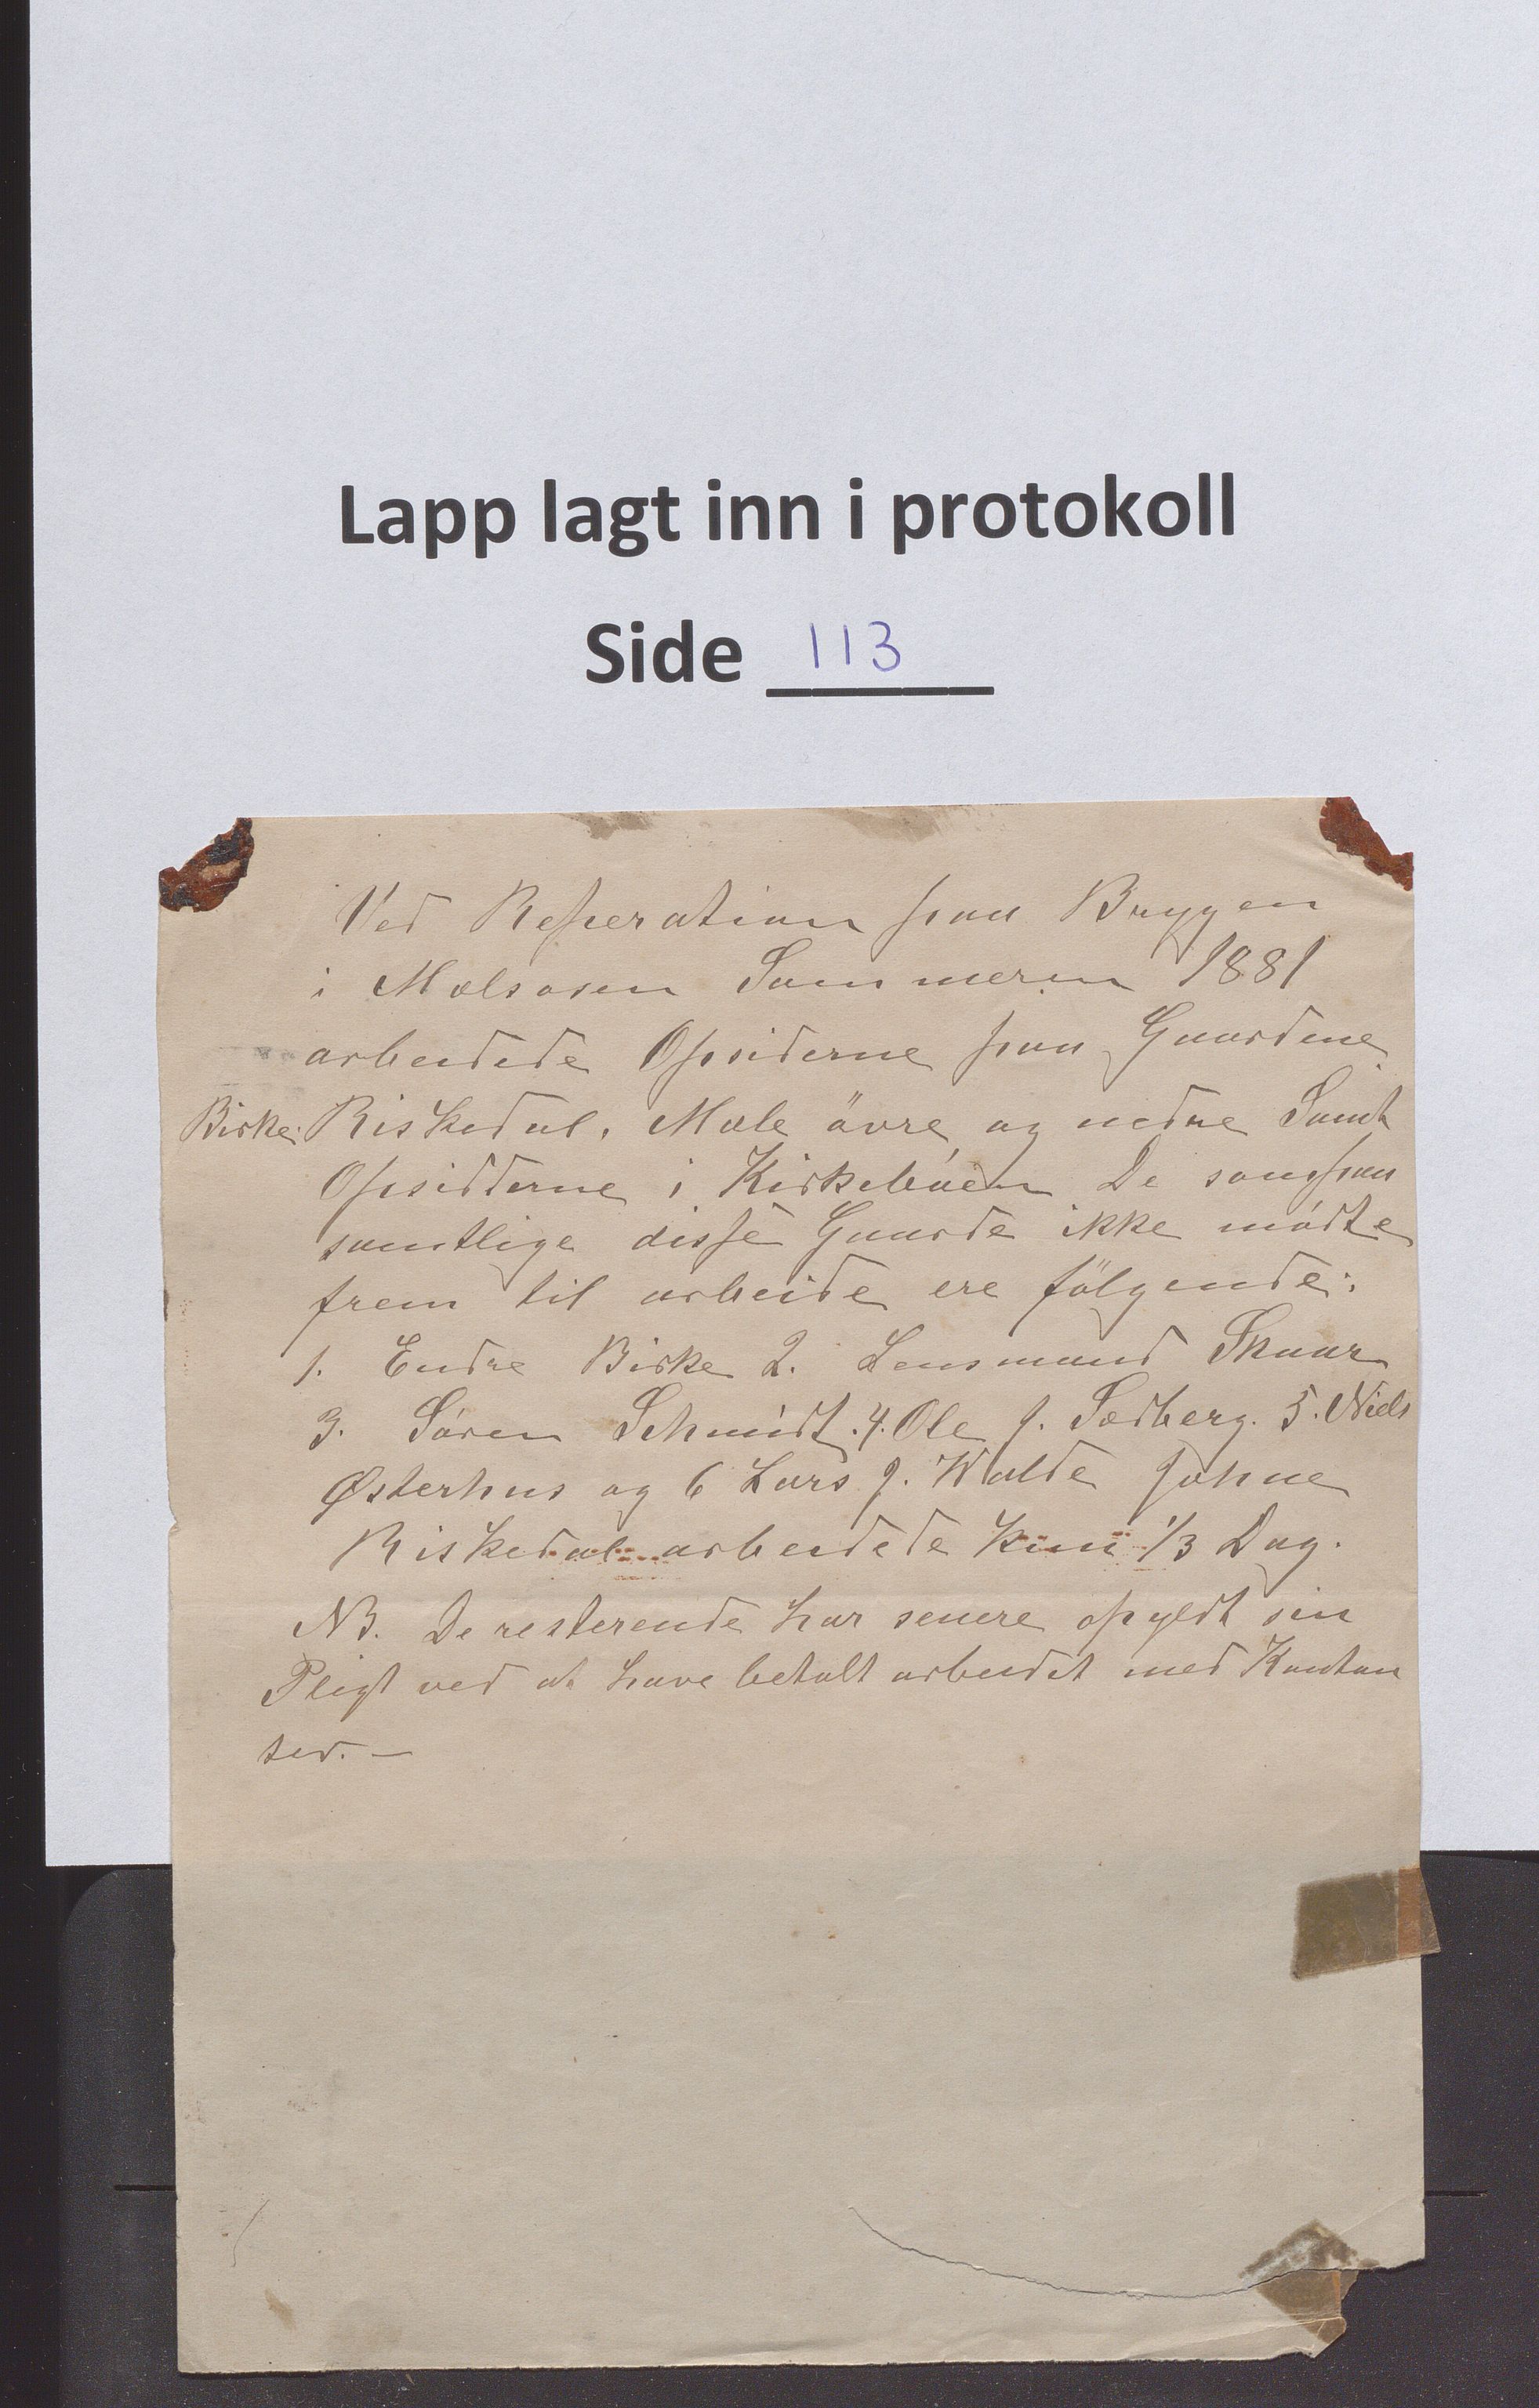 Lapp lagt inn i protokoll
Side 113
Ved Reperation paa Bryggen
i Mælsosen Sommeren 1881
arbeidede Opsiderne paa Gaardene
Birke Riskedal, Mæle övre og nedre Samt
Opsidderne i Kirkebóen De som paa
samtlige disse Gaarde ikke mødte
frem til arbeide ere fölgende:
1. Endre Birke 2. Lensmand Skaar
3. Søren Schmidt. 4. Ole J. Sedberg. 5. Niels
Østerhus og 6 Lars J. Walde Johne
Riskedal arbeidede kun 1/3 Dag.
NB. De resterende har senere opyldt sin
Pligt ved at have betalt arbeidet med Kontan
ter. —